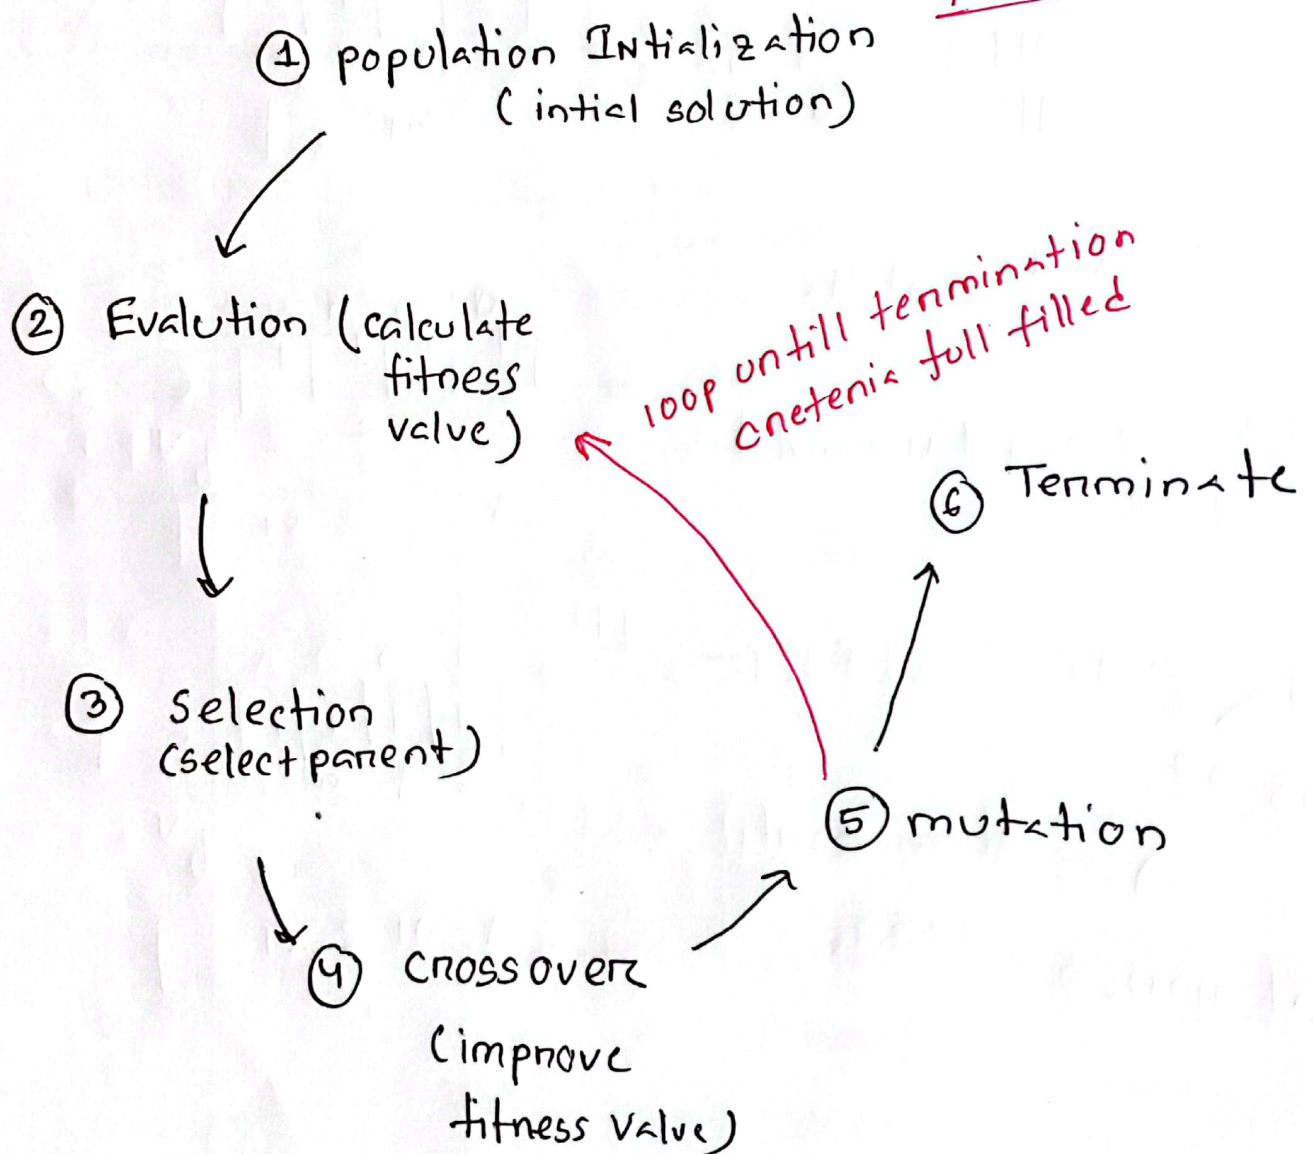 ① population Intialization
(intial solution)
② Evalution (calculate
fitness
value)
loop untill termination
creteria full filled
⑥ Terminate
③ Selection
(select parent)
⑤ mutation
④ crossover
(improve
fitness value)